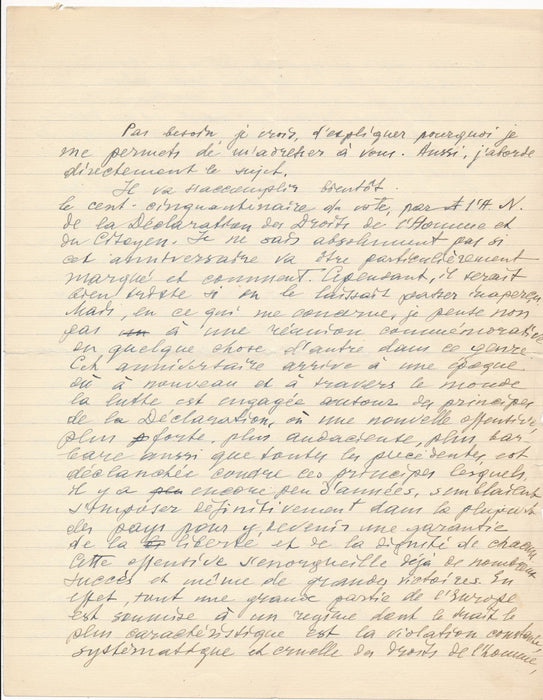 Pas besoin, je crois, d'expliquer pourquoi je
me permets de m'adresser à vous. Aussi, j'aborde
directement le sujet.
Il va s'accomplir bientôt
le cent-cinquantenaire du vote, par l'A. N.
de la Déclaration des Droits de l'Homme et
du Citoyen. Je ne sais absolument pas si
cet anniversaire va être particulièrement
marqué et comment. Cependant, il serait
bien triste si on le laissait passer inaperçu
Mais, en ce qui me concerne, je pense non
pas à une réunion commémorative
en quelque chose d'autre dans ce genre
Cet anniversaire arrive à une époque
où à nouveau et à travers le monde
la lutte est engagée autour des principes
de la Déclaration, où une nouvelle offensive
plus forte, plus audacieuse, plus bar-
bare aussi que toutes les précédentes est
déclanchée contre ces principes lesquels
il y a encore peu d'années, semblaient
s'imposer définitivement dans la plupart
des pays pour y devenir une garantie
de la liberté et de la dignité de chacun
Cette offensive s'enorgueille déjà de nombreux
succès et même de grandes victoires. En
effet, tout une grande partie de l'Europe
est soumise à un régime dont le trait le
plus caractéristique est la violation constante,
systématique et cruelle des droits de l'homme,